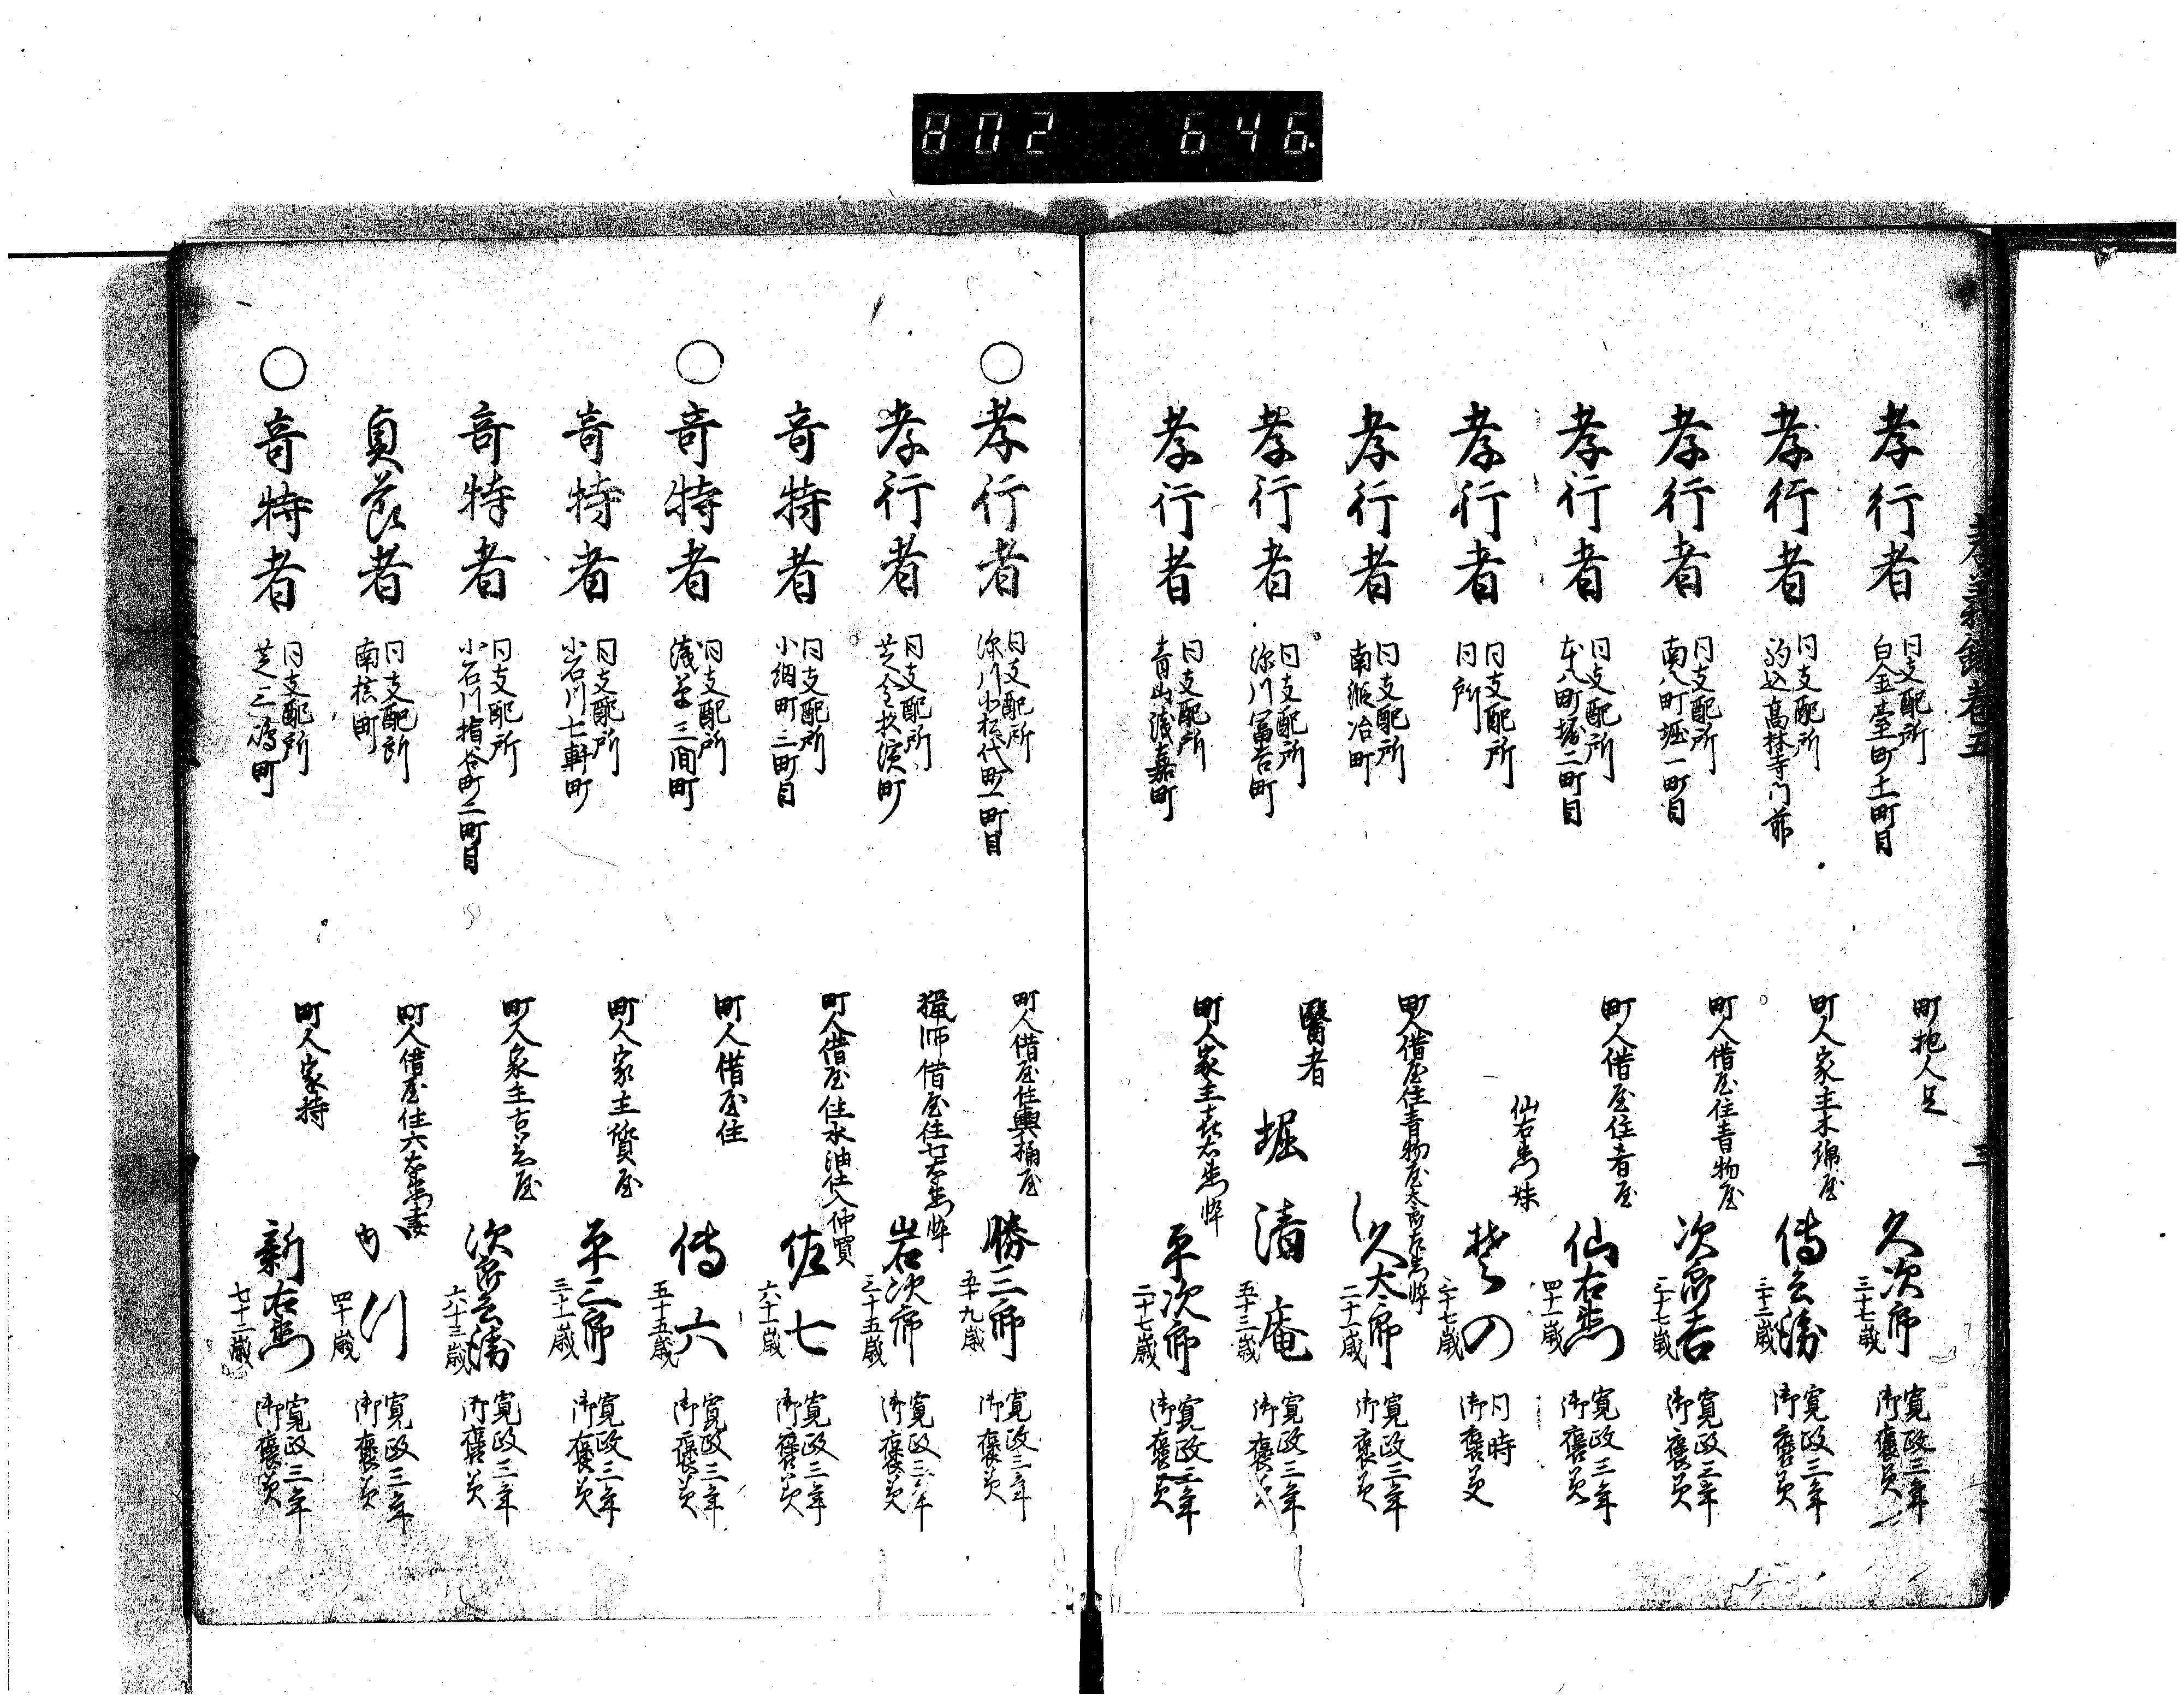 802 646
孝義録巻五
三
孝行者
同支配所
白金臺町十一町目
町抱人足
久次郎
三十七歳
寛政三年
御褒美
孝行者
同支配所
駒込高林寺門前
町人家主木綿屋
傳兵衛
三十二歳
寛政三年
御褒美
孝行者
同支配所
南八町堀一町目
町人借屋住青物屋
次郎吉
三十七歳
寛政三年
御褒美
孝行者
同支配所
本八町堀二町目
町人借屋住肴屋
仙右衛門
四十一歳
寛政三年
御褒美
孝行者
同支配所
同所
仙右衛門妹
三十七歳
同時
御褒美
孝行者
同支配所
南鍛冶町
町人借屋住青物屋太郎右衛門悴
久太郎
二十一歳
寛政三年
御褒美
孝行者
同支配所
深川冨吉町
醫者
堀清庵
五十三歳
寛政三年
御褒美
孝行者
同支配所
青山浅嘉町
町人家主喜右衛門悴
平次郎
二十七歳
寛政三年
御褒美
○孝行者
同支配所
深川小松代町一町目
町人借屋住輿桶屋
勝三郎
五十九歳
寛政三年
御褒美
孝行者
同支配所
芝金杉濱町
猟師借屋住七左衛門悴
岩次郎
三十五歳
寛政三年
御褒美
奇特者
同支配所
小網町三町目
町人借屋住水油仕入仲買
佐七
六十一歳
寛政三年
御褒美
○奇特者
同支配所
浅草三間町
町人借屋住
傳六
五十五歳
寛政三年
御褒美
奇特者
同支配所
小石川七軒町
町人家主質屋
平三郎
三十一歳
寛政三年
御褒美
奇特者
同支配所
小石川指谷町二町目
町人家主古着屋
次郎兵衛
六十三歳
寛政三年
御褒美
貞節者
同支配所
南槙町
町人借屋住六左衛門妻
四十歳
寛政三年
御褒美
○奇特者
同支配所
芝三嶋町
町人家持
新右衛門
七十二歳
寛政三年
御褒美